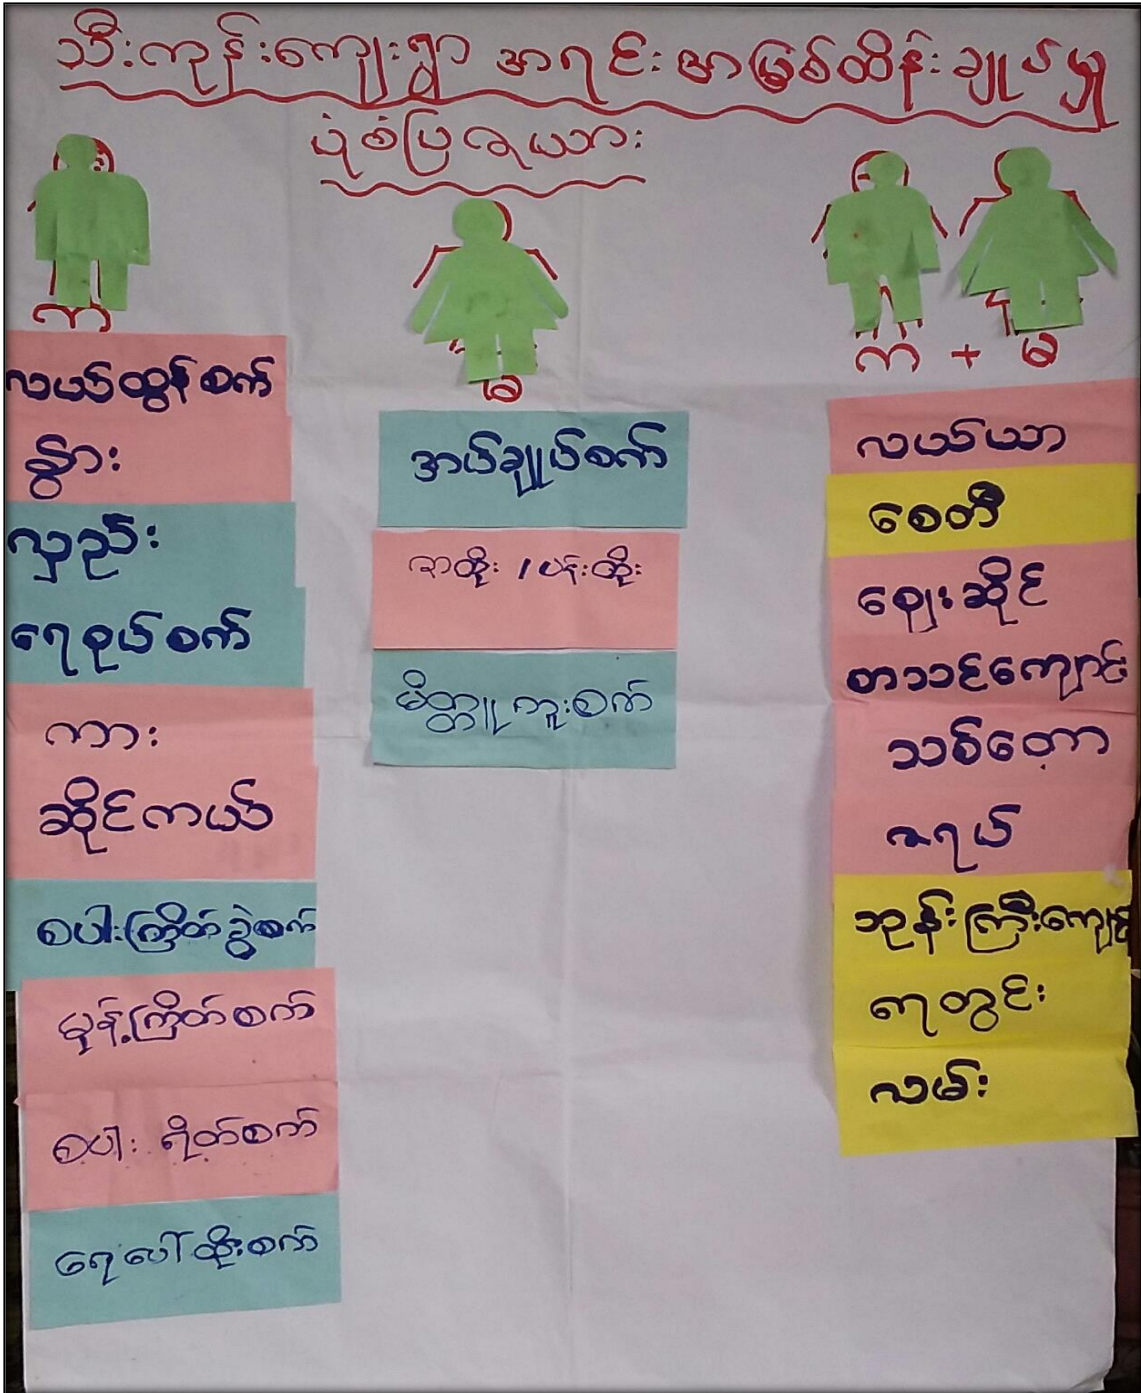 သီးကုန်းကျေးရွာ အရင်းအမြစ်ထိန်းချုပ်မှု
ပုံစံပြဇယား
ကျား
မ
ကျား + မ
လယ်ထွန်စက်
နွား
လှည်း
ရေစုပ်စက်
ကား
ဆိုင်ကယ်
စပါးကြိတ်ခွဲစက်
မုန့်ကြိတ်စက်
စပါး ရိတ်စက်
ရေပေါ်ထိုးစက်
အပ်ချုပ်စက်
ဇာထိုး / ပန်းထိုး
မိတ္တူကူးစက်
လယ်ယာ
စေတီ
ဈေးဆိုင်
စာသင်ကျောင်း
သစ်တော
ဇရပ်
ဘုန်းကြီးကျောင်း
ရေတွင်း
လမ်း